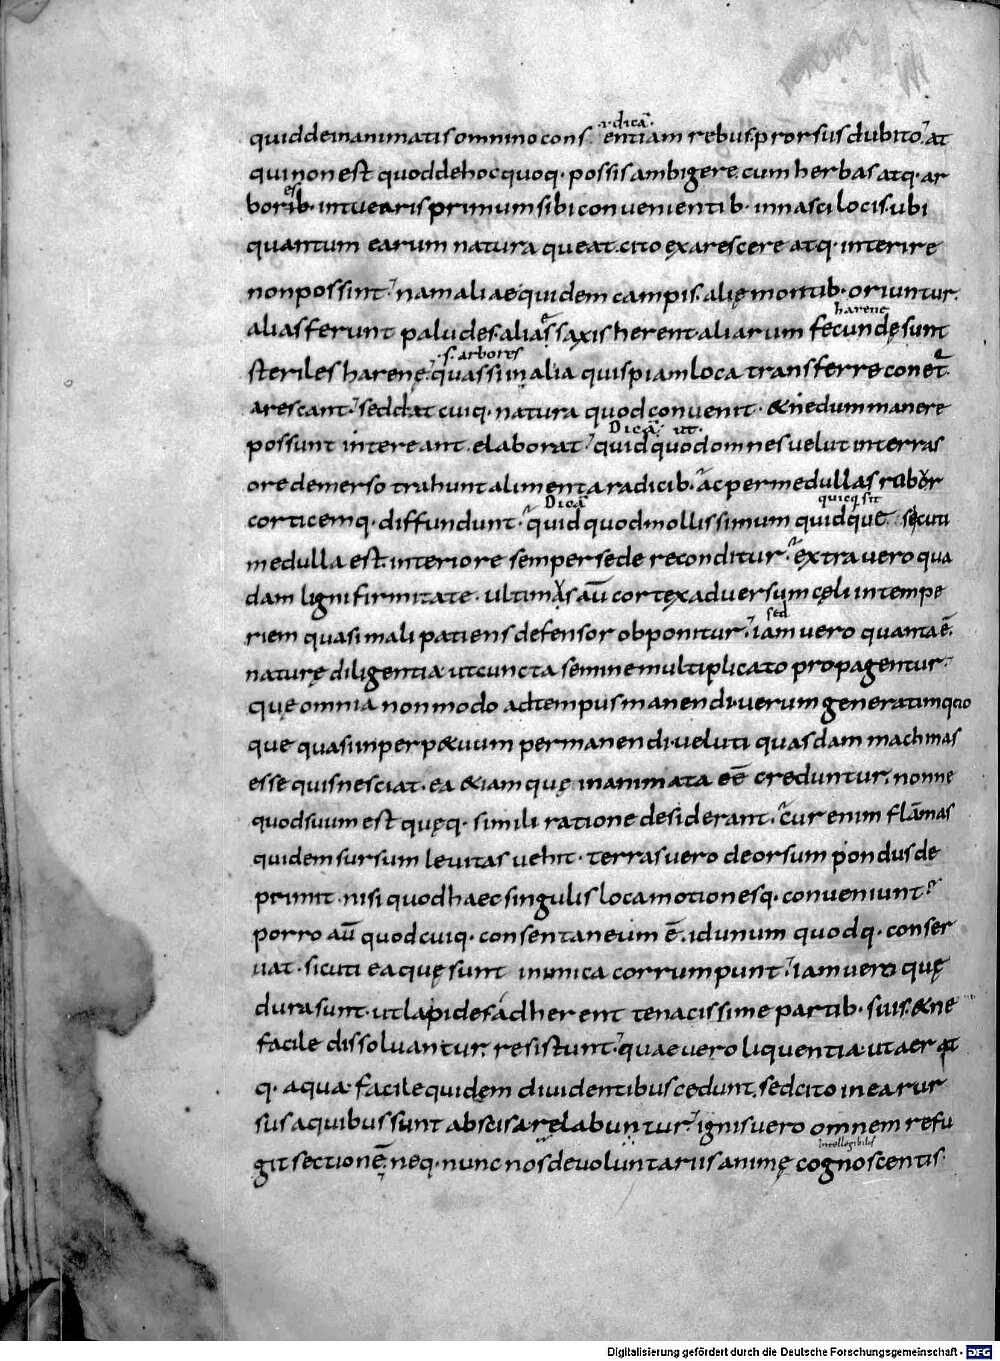 .i. dicā.
quid de inanimatis omnino consentiam rebus prorsus dubito. at
qui non est quod de hoc quoq· possis ambigere. cum herbas atq· ar
es
borib· intuearis primum sibi convenientib· innasci locis. ubi
quantum earum natura queat. cito exarescere atq· interire
non possint. nam aliae quidem campis. alię montib· oriuntur.
harenę
alias ferunt paludes. aliae saxis herent. aliarum fecundę sunt
.s. arbores
steriles harenę. quas si in alia quispiam loca transferre conet̄
arescant. sed dat cuiq· natura quod convenit. & ne dum manere
Dicā. ut.
possunt intereant. elaborat. quid quod omnes velut in terras
ore demerso trahunt alimenta radicib. ac per medullas robor
Dicā quicq̄ sit
corticemq· diffundunt. quid quod mollissimum quidque sicuti
medulla est. interiore semper sede reconditur. extra vero qua
dam ligni firmitate. ultimus aū cortex adversum cęli intempe
sed
riem quasi mali patiens defensor obponitur. iam vero quanta ē.
naturę diligentia. ut cuncta semine multiplicato propagentur.
que omnia non modo ad tempus manendi. verum generatim quo
que quasi in perp&uum permanendi. veluti quasdam machinas
esse quis nesciat. ea &iam quę inanimata eē creduntur. nonne
quod suum est quęq· simili ratione desiderant. cur enim flāmas
quidem sursum levitas vehit. terras vero deorsum pondus de
primit. nisi quod haec singulis loca motionesq. conveniunt?
porro aū quod cuiq· consentaneum ē. id unum quodq. conser
vat. sicuti ea quę sunt inimica corrumpunt. iam vero quę
dura sunt. ut lapidef adherent tenacissime partib· suis. & ne
facile dissolvantur. resistunt. quae vero liquentia. ut aer at
q. aqua. facile quidem dividentibus cedunt. sed cito in ea rur
sus a quibus sunt abscisa. relabuntur. ignis vero omnem refu
intellegibiles
git sectionē. neq. nunc nos de voluntariis animę cognoscentis